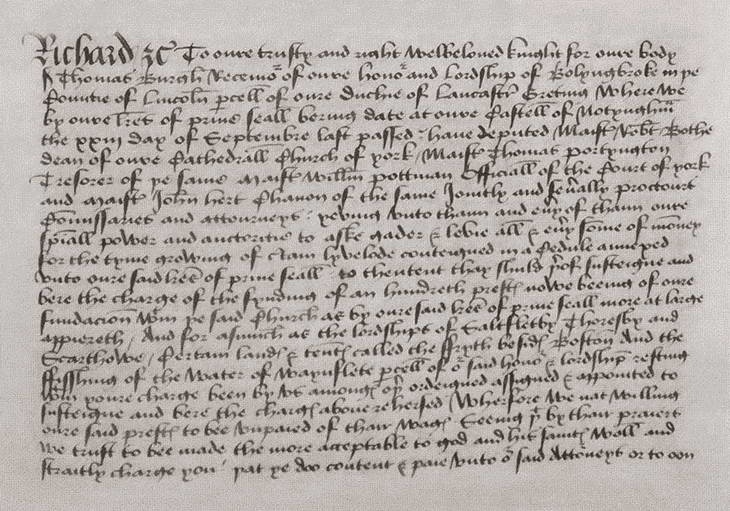 Richard &c To oure trusty and right welbeloved knyght for oure body
S Thomas Burgh Receivo^r of oure hono^r and lordship of Bolyngbroke in þe
Countie of Lincoln pcell of oure Duchie of Lancastr Greting Where we
by oure lres of prive seall bering date at oure Castell of Notyngham
the xxiij day of Septembre last passed have deputed Maist^r Robt Bothe
dean of oure Cathedrall Church of york / Maist^r Thomas portyngton
Tresorer of þe same Maist^r Willm pottman Officiall of the Court of york
and Maist^r John hert Chanon of the same Jointly and Sevally proctours
Comissaries and attourneys yeving unto thaim and evy of thaim oure
spiall power and auctoritie to aske gader & levie all & evy some of money
for the tyme growing of c tain lyvelode conteigned in a Cedule annexed
unto oure said lres of prive seall to thentent thay shuld þof susteigne and
bere the charge of the fynding of an hundreth prests nowe beeing of oure
fundacion w^tin þe said Church as by oure said lres of prive seall more at large
appiereth / And for asmuch as the lordships of Saltfletby Thoresby and
Scarthowe / Certain lands & tents called the ffryth beside Boston And the
ffisshing of the Water of Waynflete pcell of o^r said hono^r & lordship resting
w^tin youre charge been by us amongs oþ ordeigned assigned & appointed to
susteigne and bere the charges above rehersed / Wherfore we nat willing
oure said prests to bee unpaied of thair wags Seeing þ^t by thair praiers
we trust to bee made the more acceptable to god and his saints Woll and
straitly charge you þat ye doo content & paie unto o^r said Attorneys or to oon